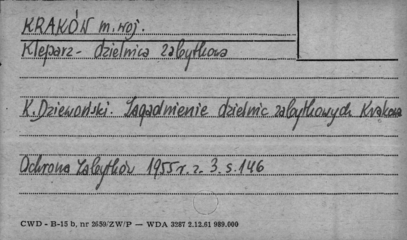 KRAKÓW m. woj.
Kleparz - dzielnica zabytkowa
K. Dziewoński. Zagadnienie dzielnic zabytkowych Krakowa
Ochrona Zabytków 1955 r. z. 3. s. 146
CWD - B-15 b, nr 2659/ZW/P — WDA 3287 2.12.61 989.000